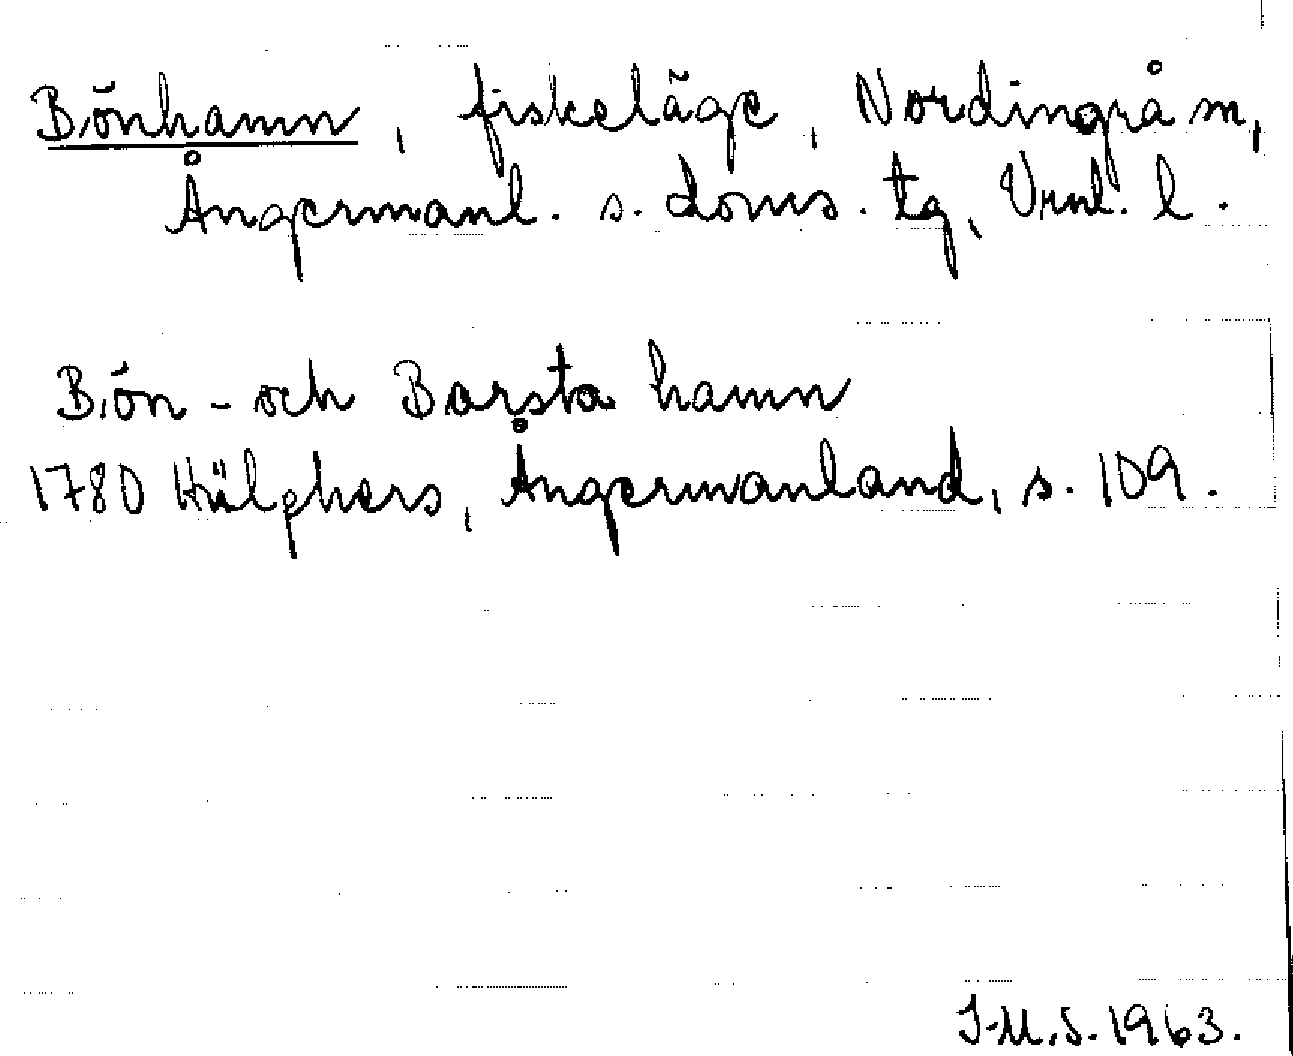 Bönhamn, fiskeläge, Nordingrå sn,
Ångermanl. s. doms. tg, Vrnl. l.
Bön- och Barsta hamn
1780 Hülphers, Ångermanland, s. 109.
I-M.S. 1963.